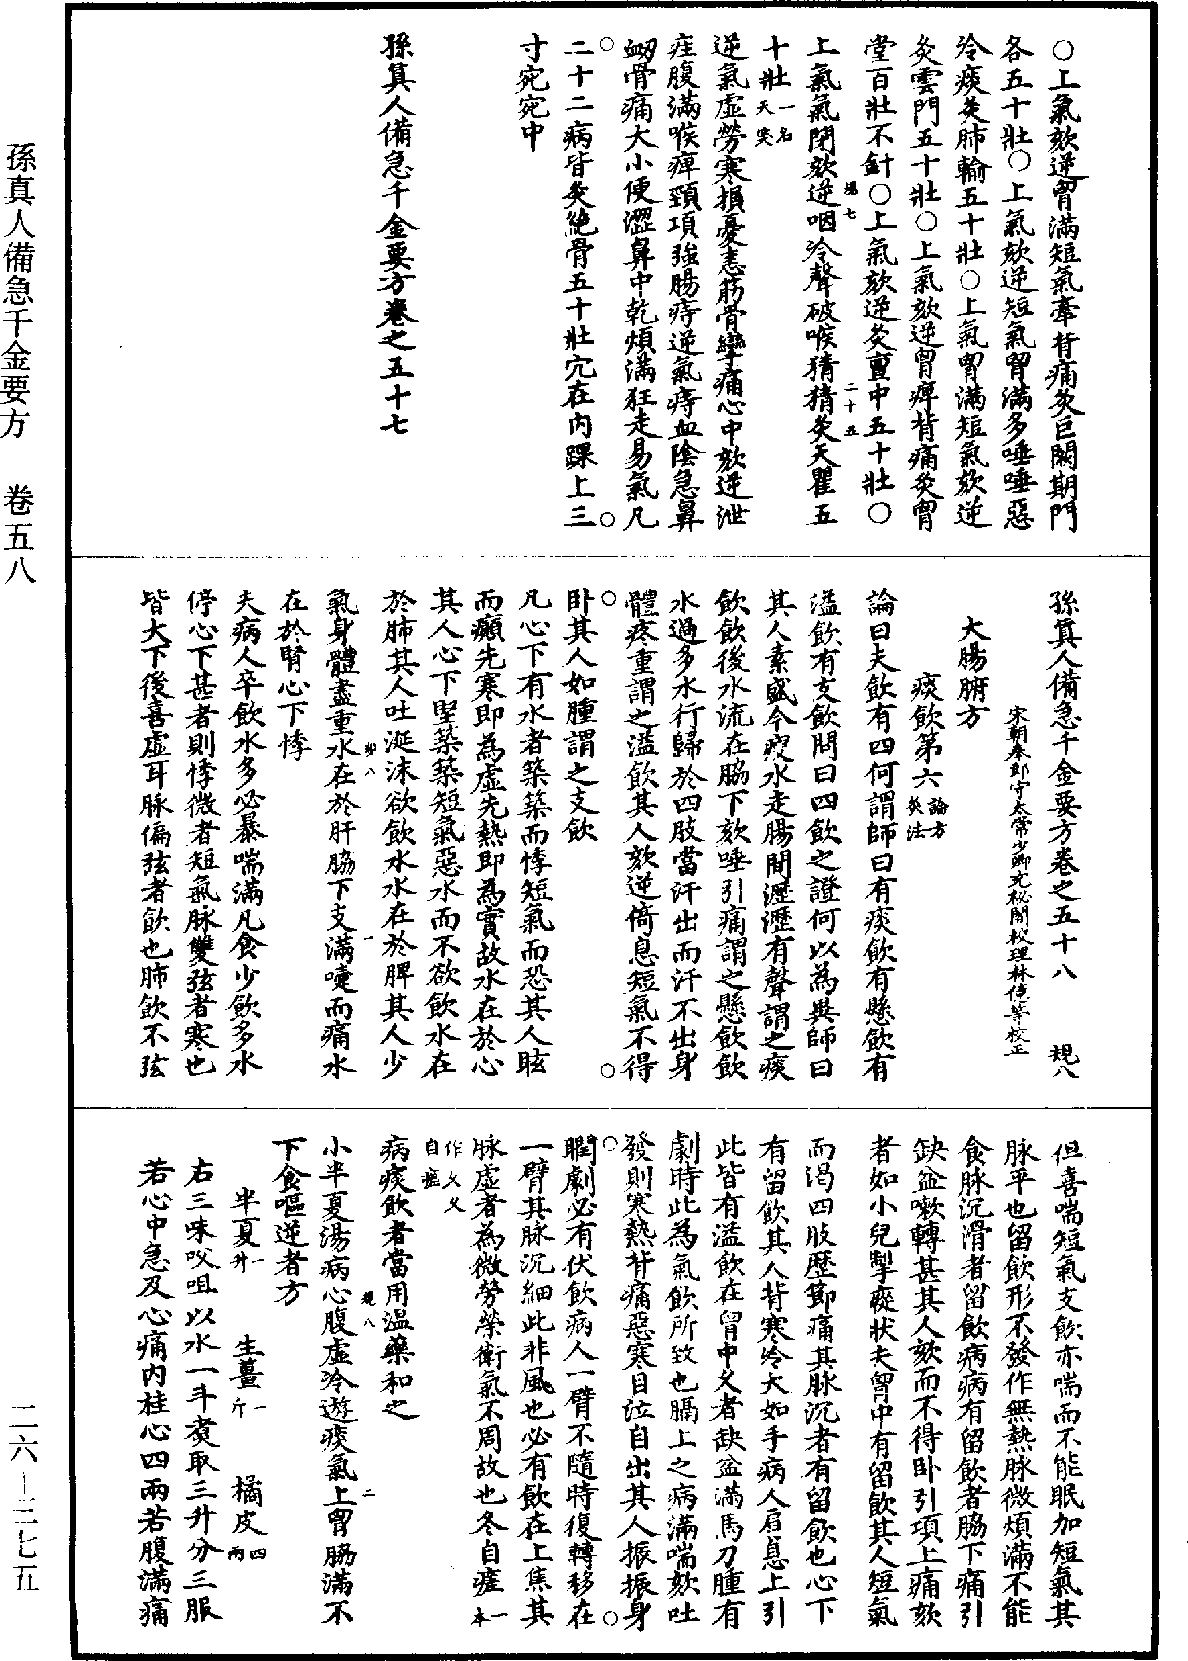 ○上氣欬逆胷滿短氣牽背痛灸巨闕期門
各五十壯○上氣欬逆短氣胷滿多唾唾惡
冷痰灸肺輸五十壯○上氣胷滿短氣欬逆
灸雲門五十壯○上氣欬逆胷痺背痛灸胷
堂百壯不針○上氣欬逆灸亶中五十壯○
上氣氣閉欬逆咽冷聲破喉猜猜灸天瞿五
十壯一名天突
逆氣虛勞寒損憂恚筋骨攣痛心中欬逆泄
疰腹滿喉痺頸項強腸痔逆氣痔血陰急鼻
衂骨痛大小便澀鼻中乾煩滿狂走易氣凡
二十二病皆灸絶骨五十壯穴在內踝上三
寸宛宛中
孫真人備急千金要方卷之五十七
孫真人備急千金要方卷之五十八 規八
宋朝奉郎守太常少卿充秘閣校理林億等校正
大腸腑方
痰飲第六論方灸法
論曰夫飲有四何謂師曰有痰飲有懸飲有
溢飲有支飲問曰四飲之證何以為異師曰
其人素盛今瘦水走腸間瀝瀝有聲謂之痰
飲飲後水流在脇下欬唾引痛謂之懸飲飲
水過多水行歸於四肢當汗出而汗不出身
體疼重謂之溢飲其人欬逆倚息短氣不得
卧其人如腫謂之支飲
凡心下有水者築築而悸短氣而恐其人眩
而癲先寒即為虛先熱即為實故水在於心
其人心下堅築築短氣惡水而不欲飲水在
於肺其人吐涎沫欲飲水水在於脾其人少
氣身體盡重水在於肝脇下支滿嚏而痛水
在於腎心下悸
夫病人卒飲水多必暴喘滿凡食少飲多水
停心下甚者則悸微者短氣脉雙弦者寒也
皆大下後喜虛耳脉偏弦者飲也肺飲不弦
但喜喘短氣支飲亦喘而不能眠加短氣其
脉平也留飲形不發作無熱脉微煩滿不能
食脉沉滑者留飲病病有留飲者脇下痛引
缺盆嗽轉甚其人欬而不得卧引項上痛欬
者如小兒掣瘲狀夫胷中有留飲其人短氣
而渴四肢歷節痛其脉沉者有留飲也心下
有留飲其人背寒冷大如手病人肩息上引
此皆有溢飲在胷中久者缺盆滿馬刀腫有
劇時此為氣飲所致也膈上之病滿喘欬吐
發則寒熱背痛惡寒目泣自出其人振振身
瞤劇必有伏飲病人一臂不隨時復轉移在
一臂其脉沉細此非風也必有飲在上焦其
脉虛者為微勞榮衛氣不周故也冬自瘥一本
作久久自瘥
病痰飲者當用温藥和之
小半夏湯病心腹虛冷遊痰氣上胷脇滿不
下食嘔逆者方
半夏一升 生薑一斤 橘皮四兩
右三味㕮咀以水一斗煑取三升分三服
若心中急及心痛內桂心四兩若腹滿痛
孫真人備急千金要方 卷五八
二六—三七五